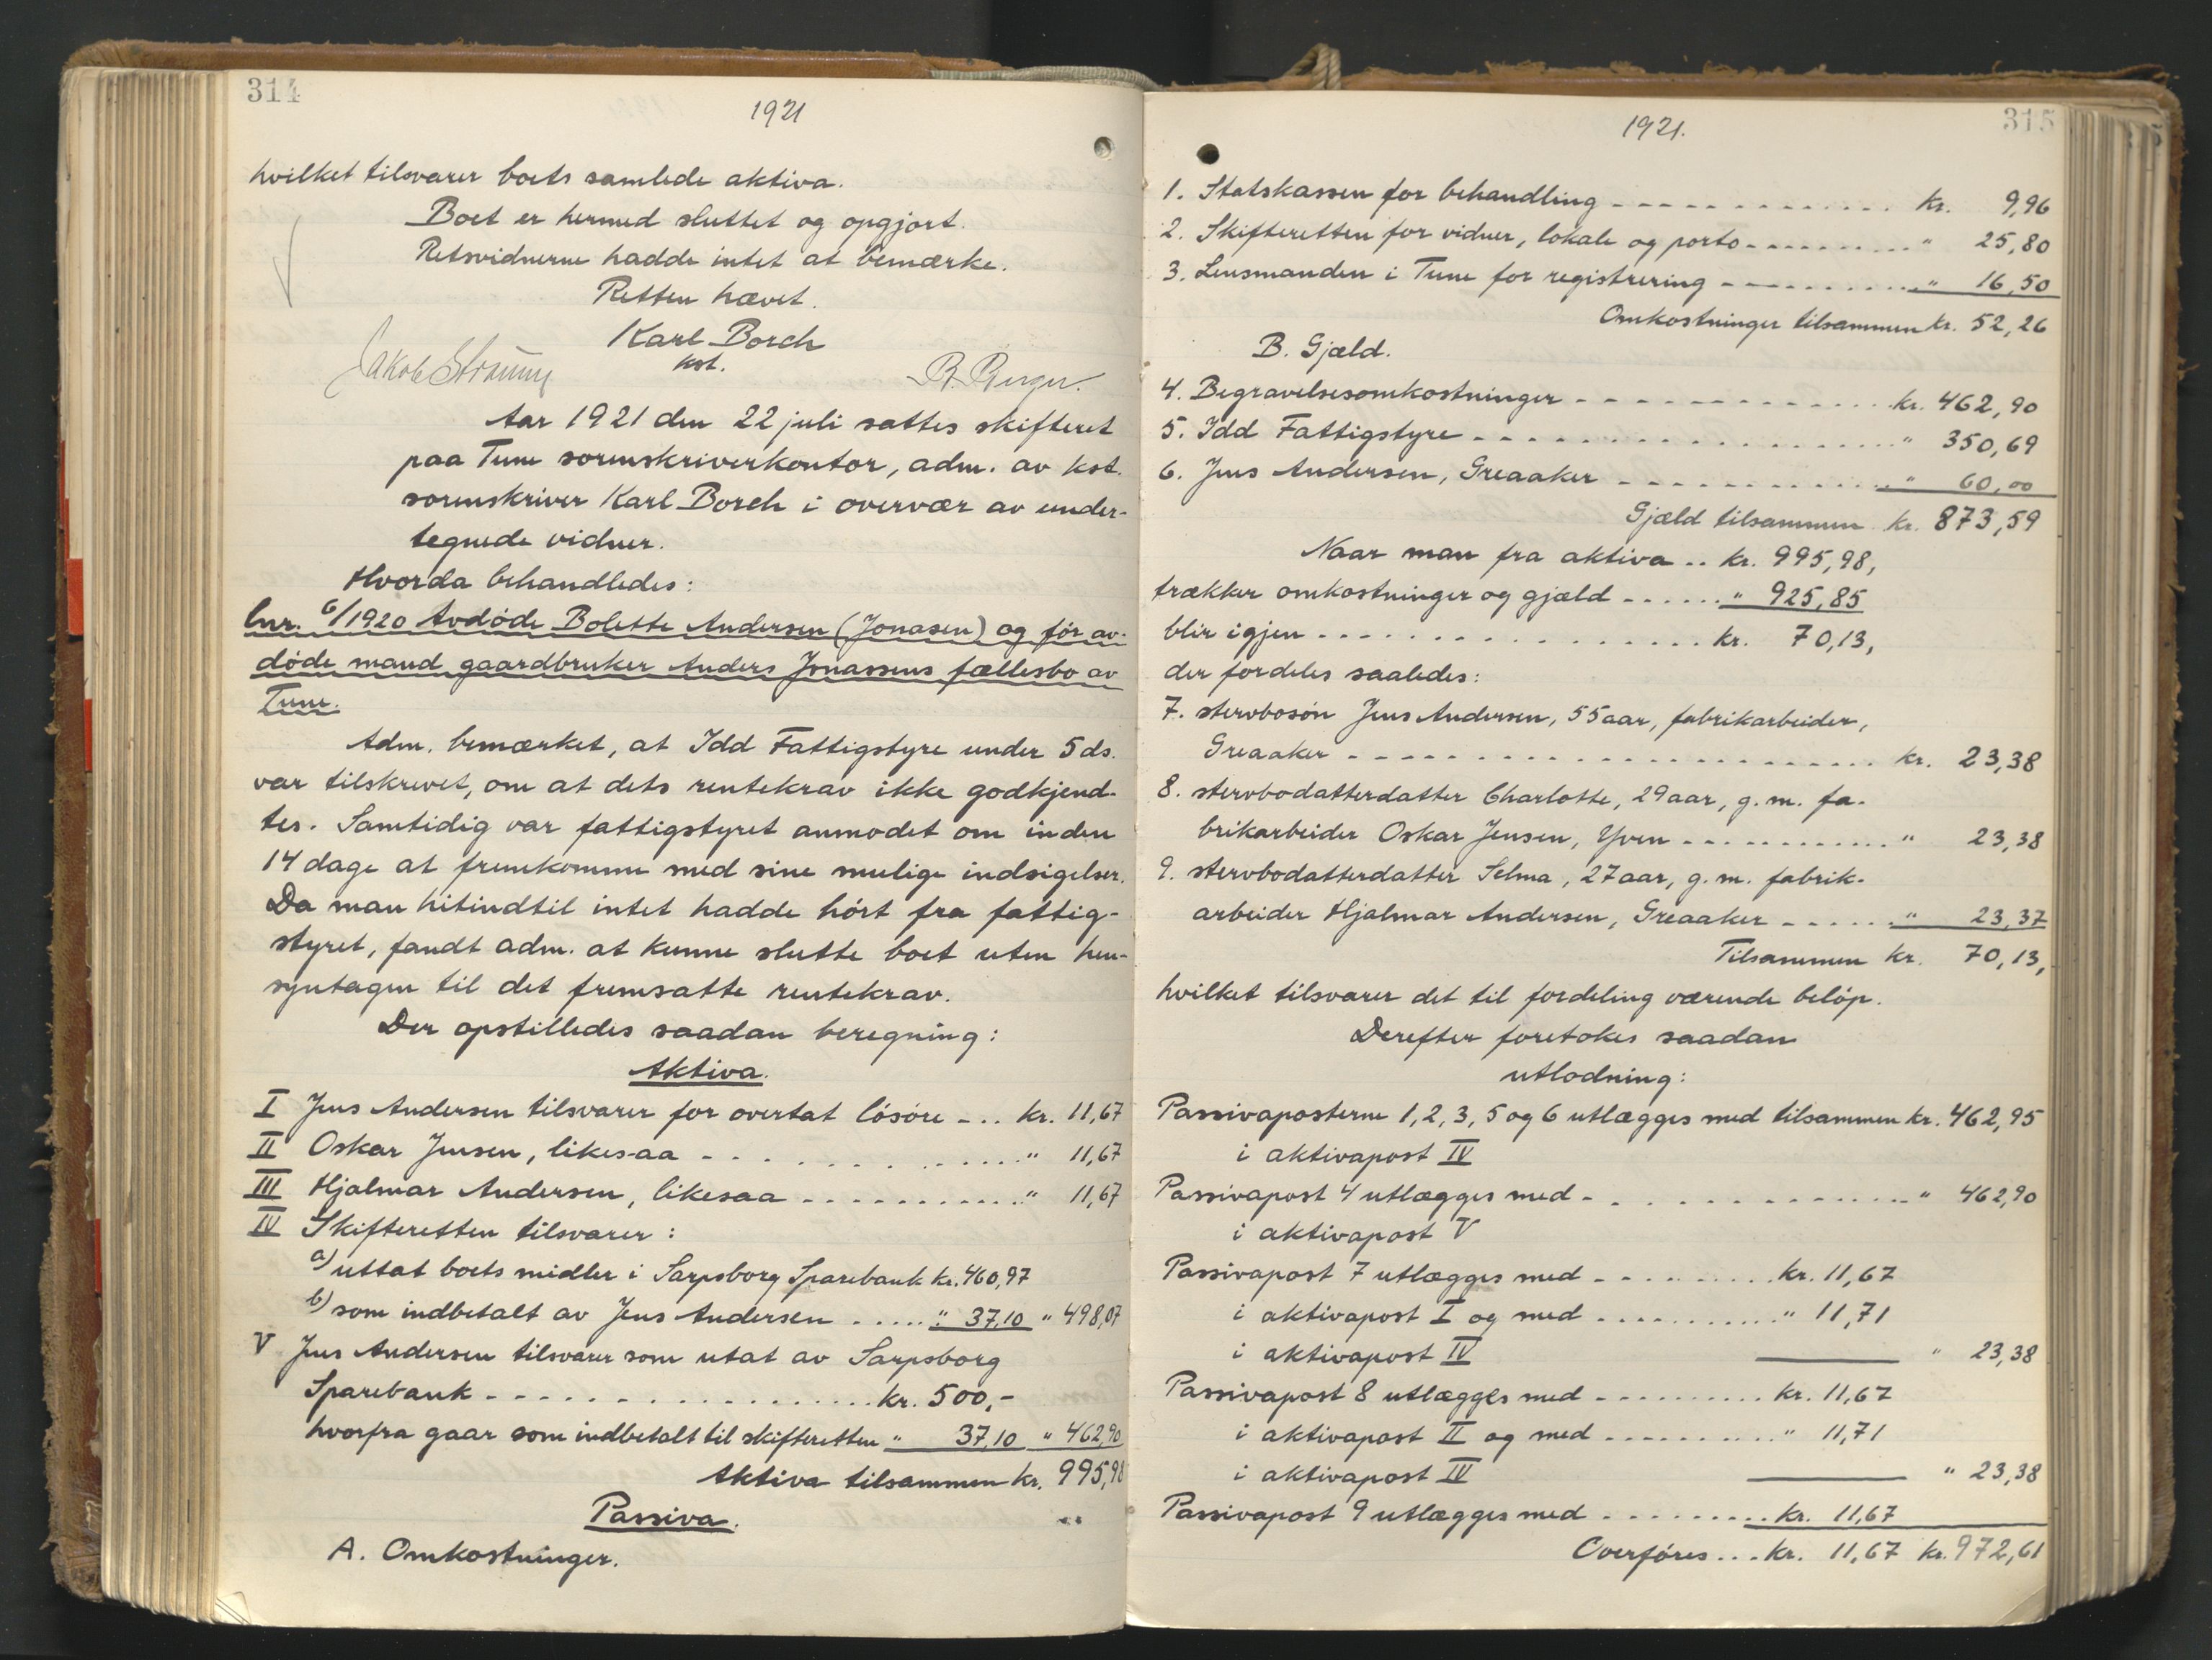 314
1921
hvilket tilsvarer boets samlede aktiva.
Boet er hermed sluttet og opgjort.
Retsvidnerne hadde intet at bemærke.
Retten hævet.
Karl Borch
kst.
Jakob
Aar 1921 den 22 juli sattes skifteret
paa Tune sorenskriverkontor, adm. av kst.
sorenskriver Karl Borch i overvær av under-
tegnede vidner.
Hvorda behandledes:
Lnr. 6/1920 Avdøde Bolette Andersen (Jonasen) og før av-
døde mand gaardbruker Anders Jonassens fællesbo av
Tune.
Adm. bemærket, at Idd Fattigstyre under 5 ds.
var tilskrevet, om at dets rentekrav ikke godkjend-
tes. Samtidig var fattigstyret anmodet om inden
14 dage at fremkomme med sine mulige indsigelser.
Da man hitindtil intet hadde hørt fra fattig-
styret, fandt adm. at kunne slutte boet uten hen-
syntagen til det fremsatte rentekrav.
Der opstilledes saadan beregning:
Aktiva.
I Jens Andersen tilsvarer for overtat løsøre - .. kr. 11,67
II Oskar Jensen, likesaa - - - - - - - - " 11,67
III Hjalmar Andersen, likesaa - - - - - - - " 11,67
IV Skifteretten tilsvarer:
a) uttat boets midler i Sarpsborg Sparebank kr. 460,97
b) som indbetalt av Jens Andersen ..... " 37,10 " 498,07
V Jens Andersen tilsvarer som utat av Sarpsborg
Sparebank - - - - - - - - - kr. 500,-
hvorfra gaar som indbetalt til skifteretten " 37,10 " 462,90
Aktiva tilsammen kr. 995,98
Passiva.
A. Omkostninger.
315
1921.
1. Statskassen for behandling - - - - - - - - kr. 9,96
2. Skifteretten for vidner, lokale og porto - - - - - " 25,80
3. Lensmanden i Tune for registrering - - - - - - " 16,50
Omkostninger tilsammen kr. 52,26
B. Gjæld.
4. Begravelsesomkostninger - - - - - - - - kr. 462,90
5. Idd Fattigstyre - - - - - - - - - - " 350,69
6. Jens Andersen, Greaaker - - - - - - - - " 60,00
Gjæld tilsammen kr. 873,59
Naar man fra aktiva .. kr. 995,98,
trækker omkostninger og gjæld - - - - " 925,85
blir igjen - - - - - - - - - - kr. 70,13,
der fordeles saaledes:
7. stervbosøn Jens Andersen, 55 aar, fabrikarbeider,
Greaaker - - - - - - - - - - - kr. 23,38
8. stervbodatterdatter Charlotte, 29 aar, g. m. fa-
brikarbeider Oskar Jensen, Yven - - - - - - " 23,38
9. stervbodatterdatter Selma, 27 aar, g. m. fabrik-
arbeider Hjalmar Andersen, Greaaker - - - - " 23,37
Tilsammen kr. 70,13,
hvilket tilsvarer det til fordeling værende beløp.
Derefter foretokes saadan
utlodning:
Passivaposterne 1, 2, 3, 5 og 6 utlægges med tilsammen kr. 462,95
i aktivapost IV
Passivapost 4 utlægges med - - - - - - - - - " 462,90
i aktivapost V
Passivapost 7 utlægges med - - - - - - kr. 11,67
i aktivapost I og med - - - - - - " 11,71
i aktivapost IV " 23,38
Passivapost 8 utlægges med - - - - - - kr. 11,67
i aktivapost II og med - - - - - - " 11,71
i aktivapost IV " 23,38
Passivapost 9 utlægges med - - - - - - kr. 11,67
Overføres ... kr. 11,67 kr. 972,61